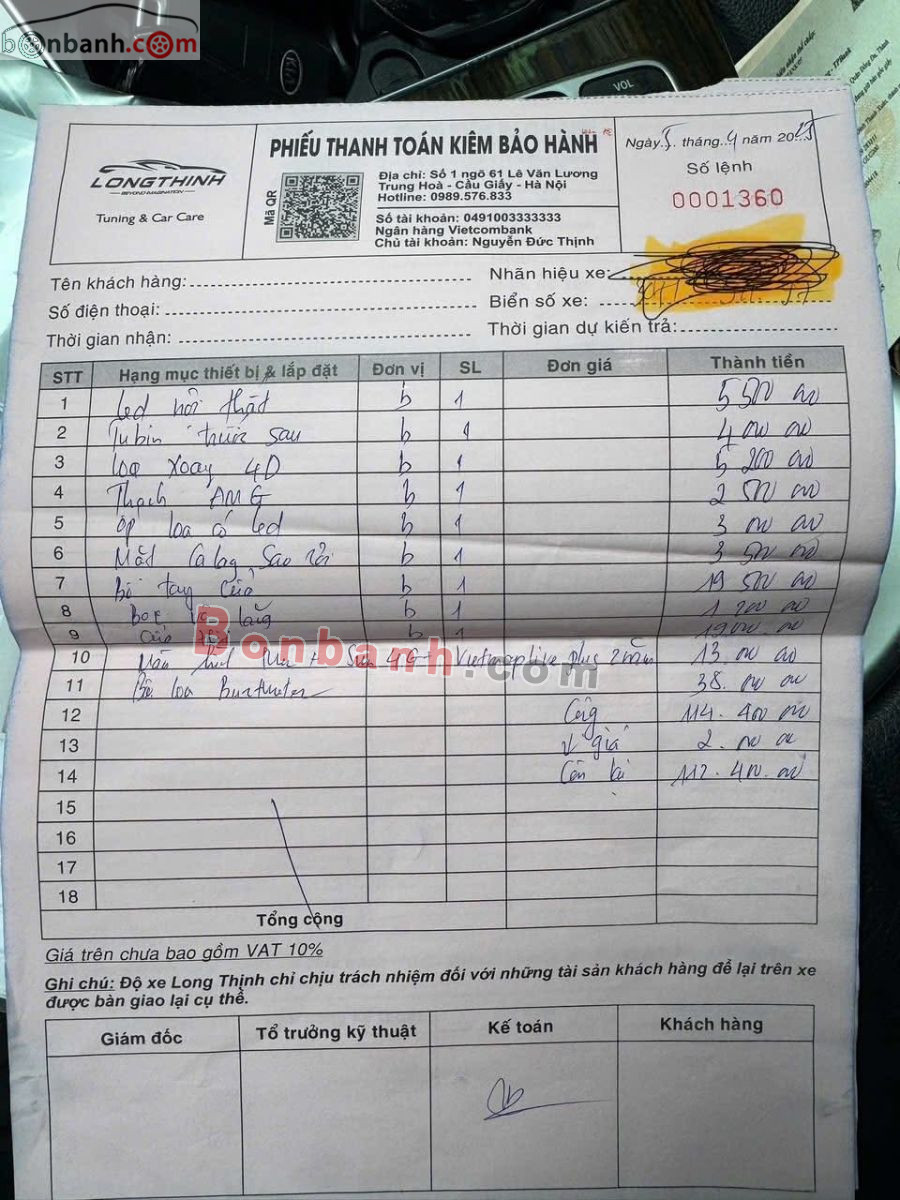 bonbanh.com
VOL
LONGTHINH
BEYOND IMAGINATION
Tuning & Car Care
Mã QR
PHIẾU THANH TOÁN KIÊM BẢO HÀNH
Địa chỉ: Số 1 ngõ 61 Lê Văn Lương
Trung Hoà - Cầu Giấy - Hà Nội
Hotline: 0989.576.833
Số tài khoản: 0491003333333
Ngân hàng Vietcombank
Chủ tài khoản: Nguyễn Đức Thịnh
Ngày 5 tháng 4 năm 2025
Số lệnh
0001360
Tên khách hàng:
Nhãn hiệu xe:
Số điện thoại:
Biển số xe:
Thời gian nhận:
Thời gian dự kiến trả:
STT Hạng mục thiết bị & lắp đặt Đơn vị SL Đơn giá Thành tiền
1 Led nội thất b 1 5 500 00
2 Tubin trước sau b 1 4 00 00
3 loa xoay 4D b 1 5 200 00
4 Thạch AMG b 1 2 500 00
5 ốp loa có led b 1 3 00 00
6 Mặt Calang Sao rơi b 1 3 500 00
7 Bộ tay cửa b 1 19 500 00
8 b 1
9 Cửa b 1
10 Màn + Sim 4G - Vietmap live plus 2 năm 13. 00 00
11 Bộ loa Burmester 38. 00 00
12 Cộng 114. 400 00
13 giá 2. 00 00
14 Còn lại 112. 400. 00
15
16
17
18
Tổng cộng
Bonbanh.com
Giá trên chưa bao gồm VAT 10%
Ghi chú: Độ xe Long Thịnh chỉ chịu trách nhiệm đối với những tài sản khách hàng để lại trên xe
được bàn giao lại cụ thể.
Giám đốc Tổ trưởng kỹ thuật Kế toán Khách hàng